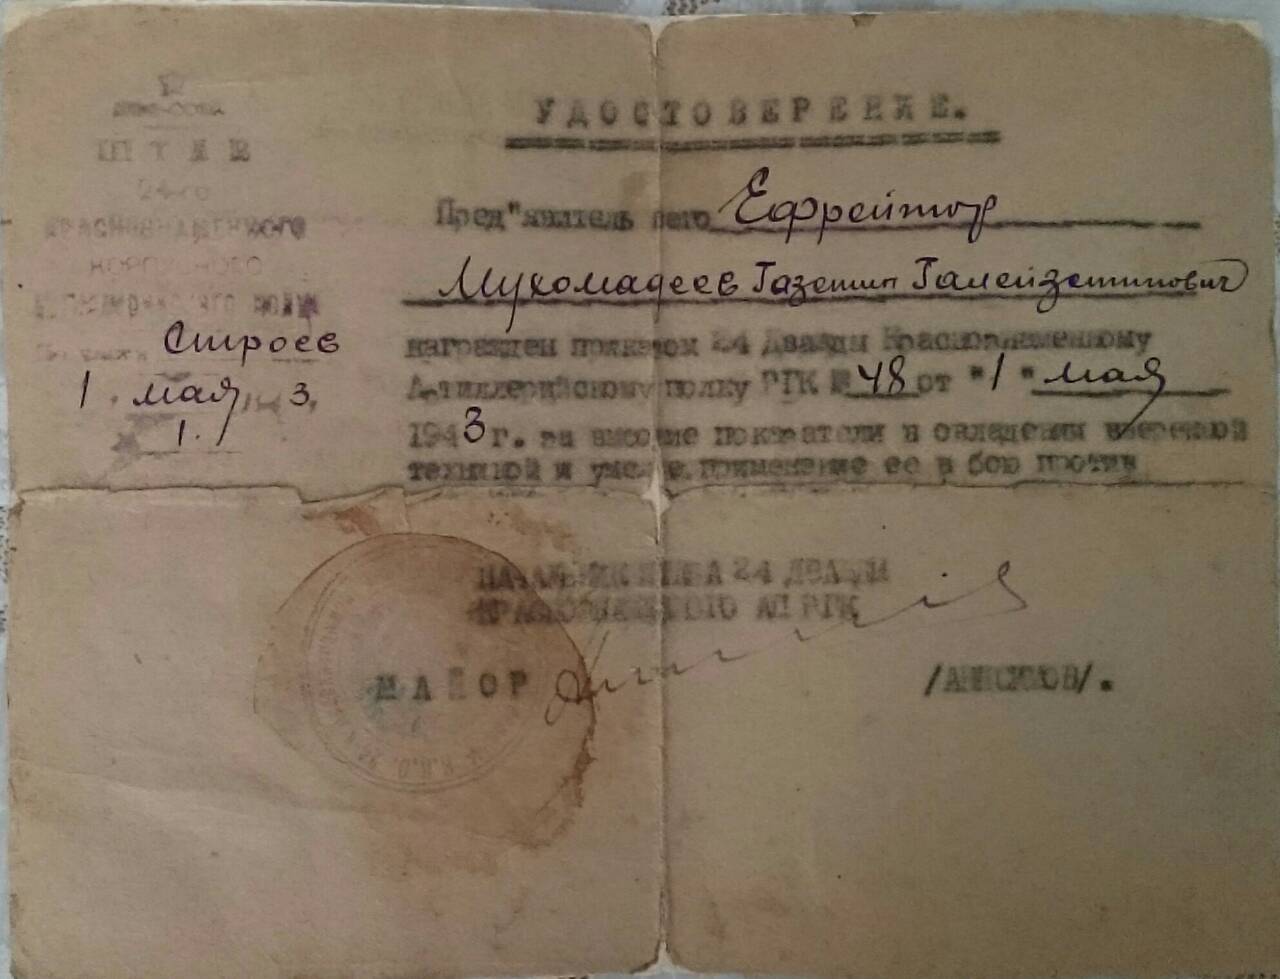 ШТАБ
24-го
КРАСНОЗНАМЕННОГО
КОРПУСНОГО
полка
Строев
1. мая 3.
1.
УДОСТОВЕРЕНИЕ.
Пред"явитель сего Ефрейтор
Мухомадеев Газетип Галейзетипович
награжден приказом 24 Дважды Краснознаменному
Артиллерийскому полку РГК № 48 от "1" мая
1943 г. за высокие показатели в овладении вверенной
техникой и умелое применение ее в бою против
НАЧАЛЬНИК ШТАБА 24 ДВАЖДЫ
КРАСНОЗНАМЕННОГО АП РГК
МАЙОР /АНИСИМОВ/.